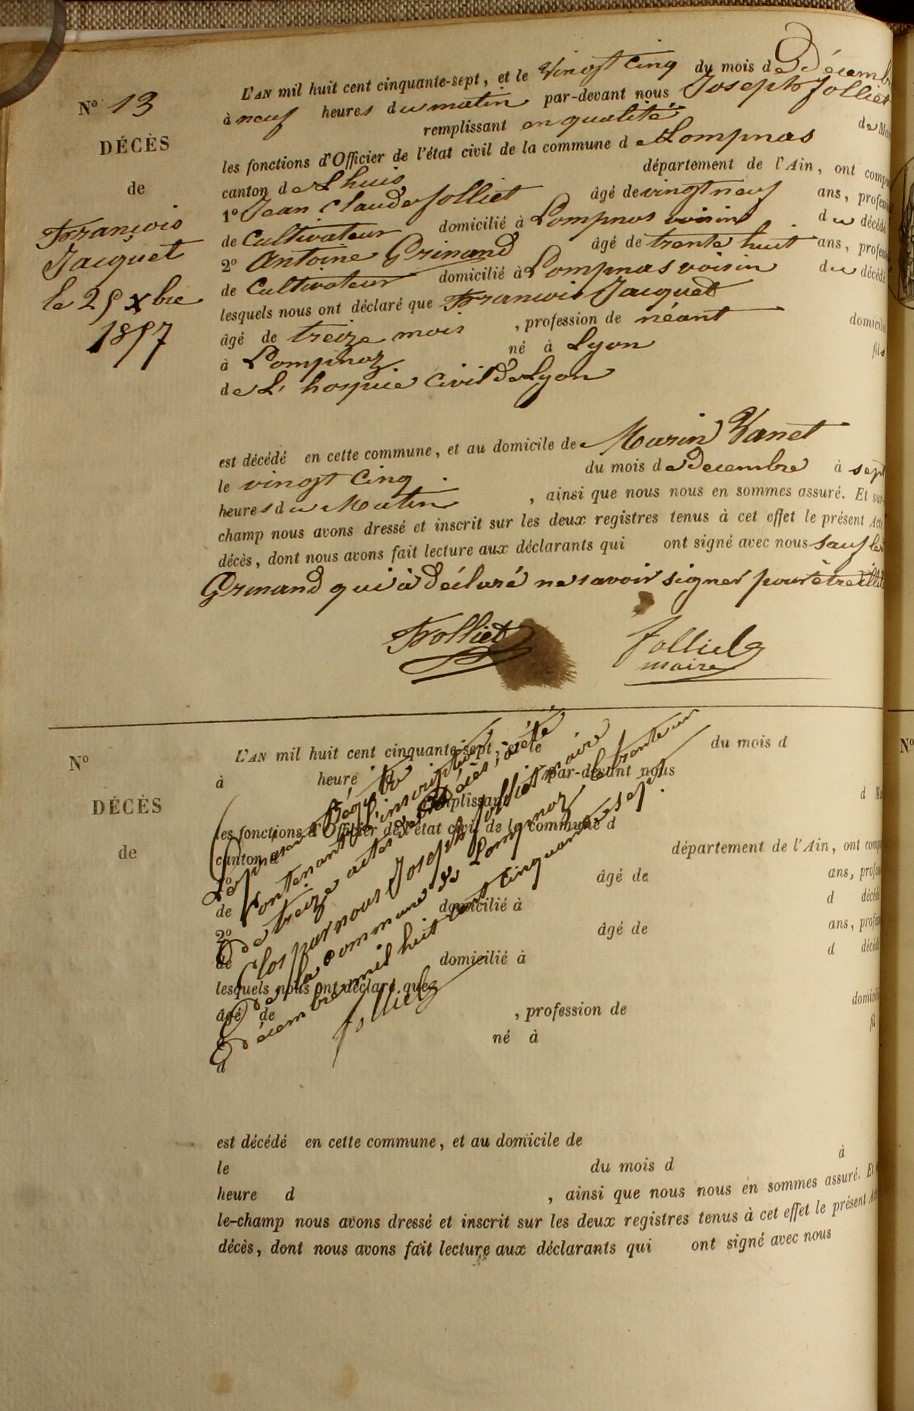 N° 13
DÉCÈS
de
François
Jacquet
le 25 xbre
1857
L'AN mil huit cent cinquante-sept, et le Vingt Cinq du mois de Décemb
à neuf heures du matin par-devant nous Joseph Jolliet
remplissant en qualité de Ma
les fonctions d'Officier de l'état civil de la commune de Lompnas
canton de Lhuis département de l'Ain, ont comp
1° Jean Claude Jolliet âgé de vingt neuf ans, profes
de Cultivateur domicilié à Lompnas voisin du décédé
2° Antoine Grinand âgé de trente huit ans, profess
de Cultivateur domicilié à Lompnas voisin du décédé
lesquels nous ont déclaré que François Jacquet
âgé de treize mois, profession de néant domicilié
à Lompnaz né à Lyon fils
de L'hospice Civil de Lyon
est décédé en cette commune, et au domicile de Marin Vanet
le vingt Cinq du mois de Decembre à sept
heures du Matin, ainsi que nous nous en sommes assuré. Et sur
champ nous avons dressé et inscrit sur les deux registres tenus à cet effet le présent Acte
décès, dont nous avons fait lecture aux déclarants qui ont signé avec nous sauf le
Grinand qui à déclaré ne savoir signer pour être
Jolliet
Jolliet
maire
N°
DÉCÈS
de
L'AN mil huit cent cinquante-sept, et le du mois d
à heure par-devant nous
remplissant d Ma
les fonctions d'Officier de l'état civil de la commune d
canton d département de l'Ain, ont comp
1° âgé de ans, profes
de domicilié à d décédé
2° âgé de ans, profes
de domicilié à d décédé
lesquels nous ont déclaré que
âgé de, profession de domicilié
à né à fil
d
Le présent Régistre
contenant l'inscription
de treize actes de Décès, a été
Clos par nous Joseph Jolliet maire
de la commune de Lompnaz, le trente un
décembre mil huit cent cinquante sept.
Jolliet
est décédé en cette commune, et au domicile de
le du mois d à
heure d, ainsi que nous nous en sommes assuré. Et
le-champ nous avons dressé et inscrit sur les deux registres tenus à cet effet le présent Act
décès, dont nous avons fait lecture aux déclarants qui ont signé avec nous
N°